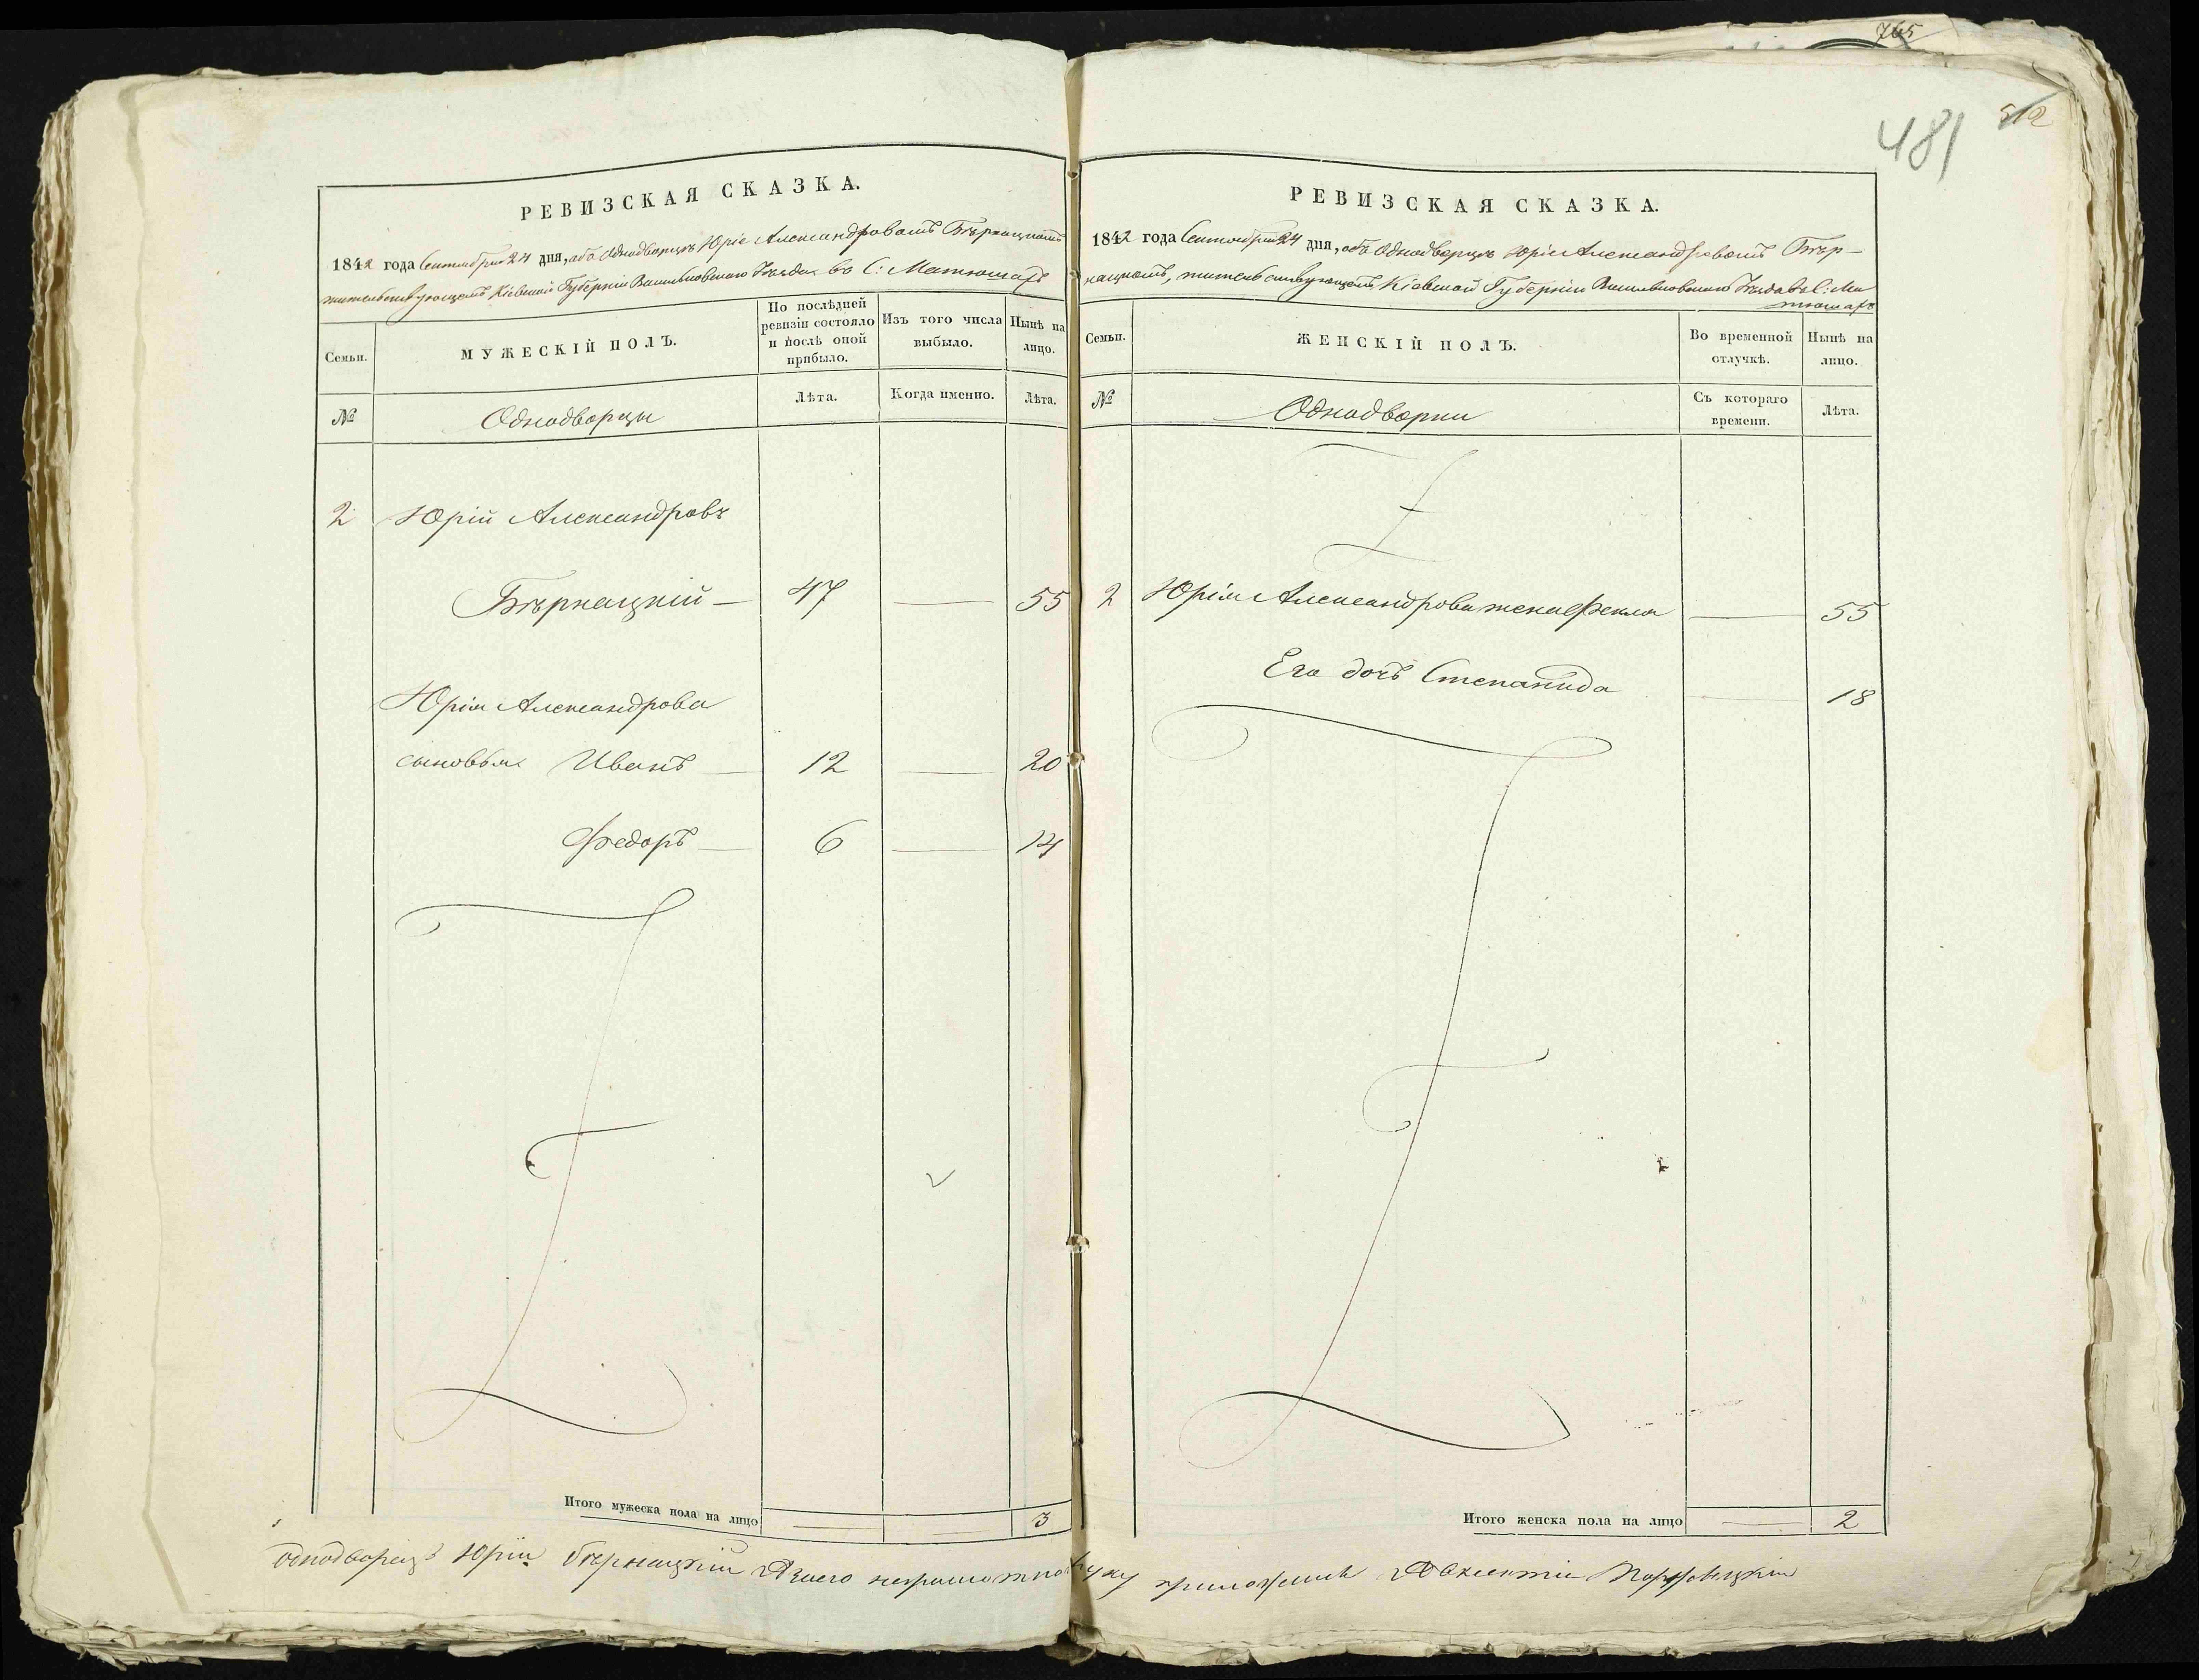 765
512
481
РЕВИЗСКАЯ СКАЗКА.
1842 года Сентября 24 дня, объ Однодворцѣ Юріе Александровомъ Бѣрнацкомъ
жительствующемъ Кіевской Губерніи Васильковскаго Уѣзда въ С: Матюшахъ
Семьи.
МУЖЕСКІЙ ПОЛЪ.
По послѣдней ревизіи состояло и послѣ оной прибыло.
Изъ того числа выбыло.
Нынѣ на лицо.
№
Однодворцы
Лѣта.
Когда именно.
Лѣта.
2 Юрій Александровъ
Бѣрнацкій — 47 — 55
Юрія Александрова
сыновья Иванъ — 12 — 20
Федоръ — 6 — 14
Итого мужеска пола на лицо — — 3
РЕВИЗСКАЯ СКАЗКА.
1842 года Сентября 24 дня, объ Однодворцѣ Юріе Александровомъ Бѣр-
нацкомъ, жительствующемъ Кіевской Губерніи Васильковскаго Уѣзда въ С: Ма
тюшахъ
Семьи.
ЖЕНСКІЙ ПОЛЪ.
Во временной отлучкѣ.
Нынѣ на лицо.
№
Однодворки
Съ котораго времени.
Лѣта.
2 Юрія Александрова жена Фекла — 55
Его дочь Степанида — 18
Итого женска пола на лицо — 2
однодворецъ Юрій Бѣрнацкій А за его неграмотного руку приложилъ